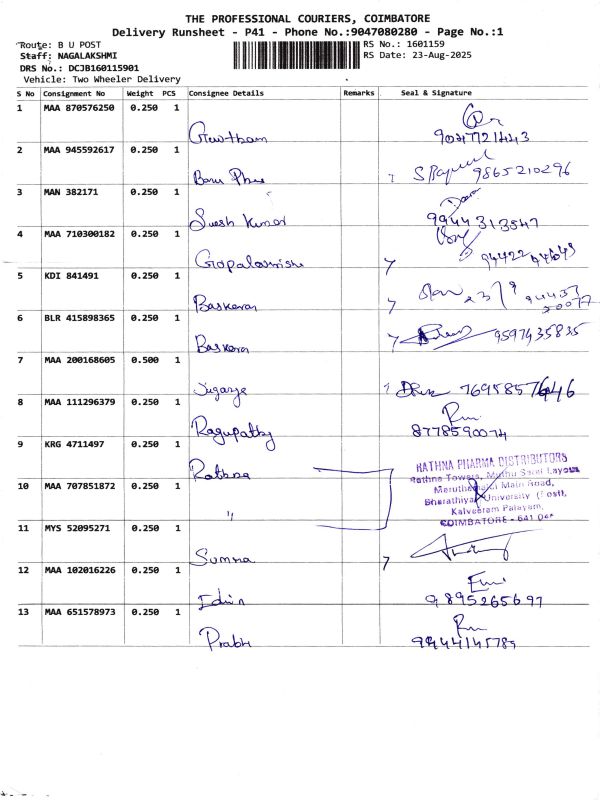 THE PROFESSIONAL COURIERS, COIMBATORE
Delivery Runsheet - P41 - Phone No.:9047080280 - Page No.:1
Route: B U POST
RS No.: 1601159
Staff: NAGALAKSHMI
RS Date: 23-Aug-2025
DRS No.: DCJB160115901
Vehicle: Two Wheeler Delivery
S No Consignment No Weight PCS Consignee Details Remarks Seal & Signature
1 MAA 870576250 0.250 1
Gowtham
2 MAA 945592617 0.250 1
9865210296
3 MAN 382171 0.250 1
Suresh Kumar
4 MAA 710300182 0.250 1
5 KDI 841491 0.250 1
Baskaran
6 BLR 415898365 0.250 1
Baskaran 9597435835
7 MAA 200168605 0.500 1
8 MAA 111296379 0.250 1
Ragupathy 8778590074
9 KRG 4711497 0.250 1
Rathna
RATHNA PHARMA DISTRIBUTORS
Rathna Towers, Muthu Sarai Layout
10 MAA 707851872 0.250 1
Main Road,
Bharathiyar University (Post),
" Kalveeram Palayam,
11 MYS 52095271 0.250 1
COIMBATORE - 641 046
12 MAA 102016226 0.250 1
Edwin
13 MAA 651578973 0.250 1
Prabhu 9944145789